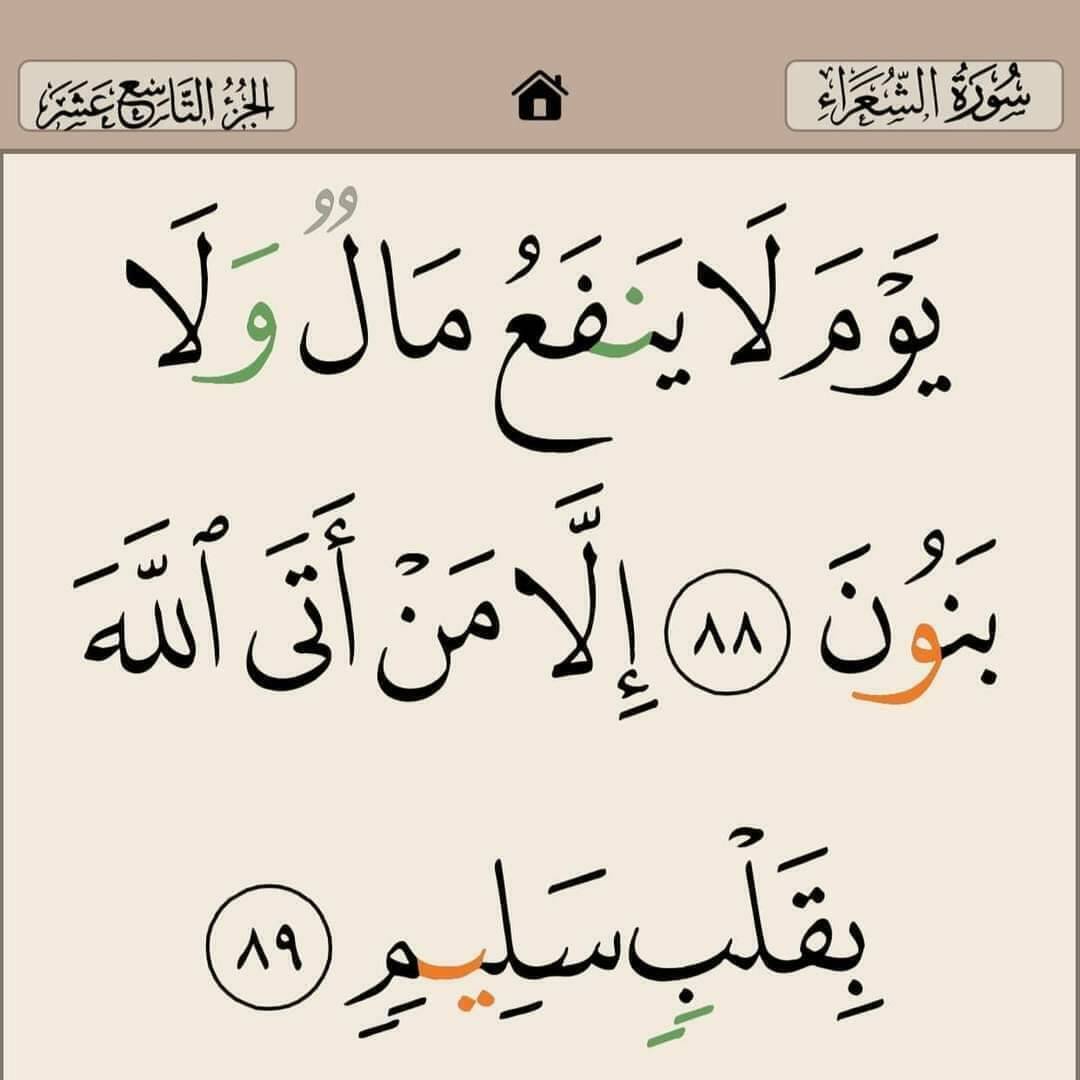 سُورَةُ الشُّعَرَاءِ
الجُزْءُ التَّاسِعَ عَشَرَ
يَوْمَ لَا يَنفَعُ مَالٌ وَلَا
بَنُونَ ٨٨ إِلَّا مَنْ أَتَى ٱللَّهَ
بِقَلْبٍ سَلِيمٍ ٨٩